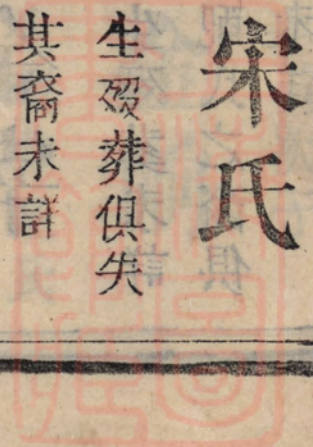 宋氏
生殁葬俱失
其裔未詳